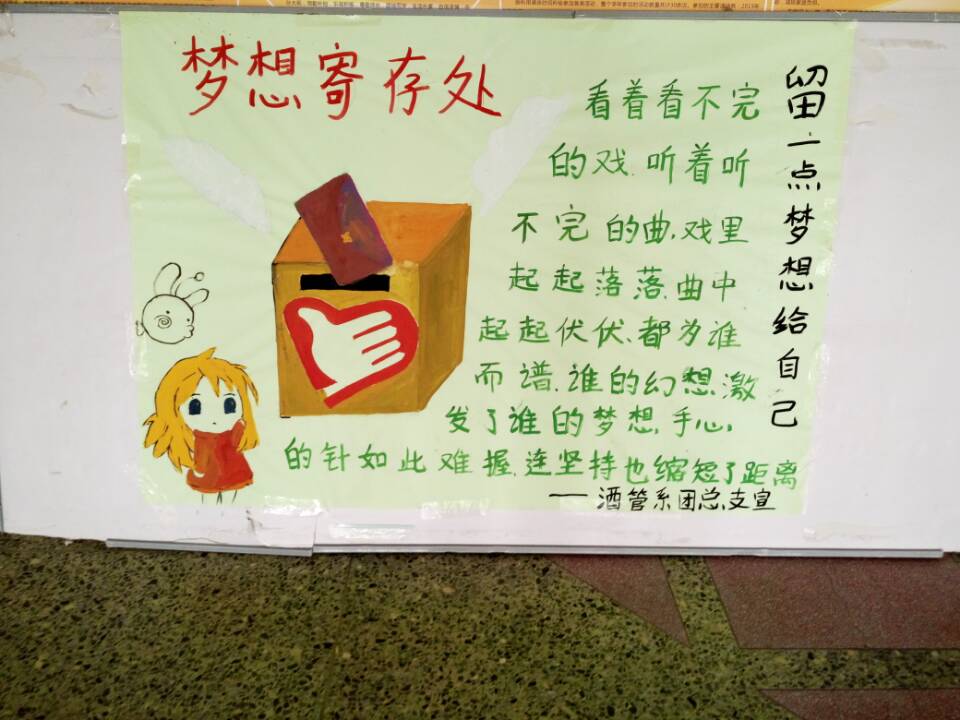 梦想寄存处
看着看不完
的戏.听着听
不完的曲.戏里
起起落落.曲中
起起伏伏、都为谁
而谱.谁的幻想激
发了谁的梦想.手心,
的针如此难握.连坚持也缩短了距离
留一点梦想给自己
——酒管系团总支宣